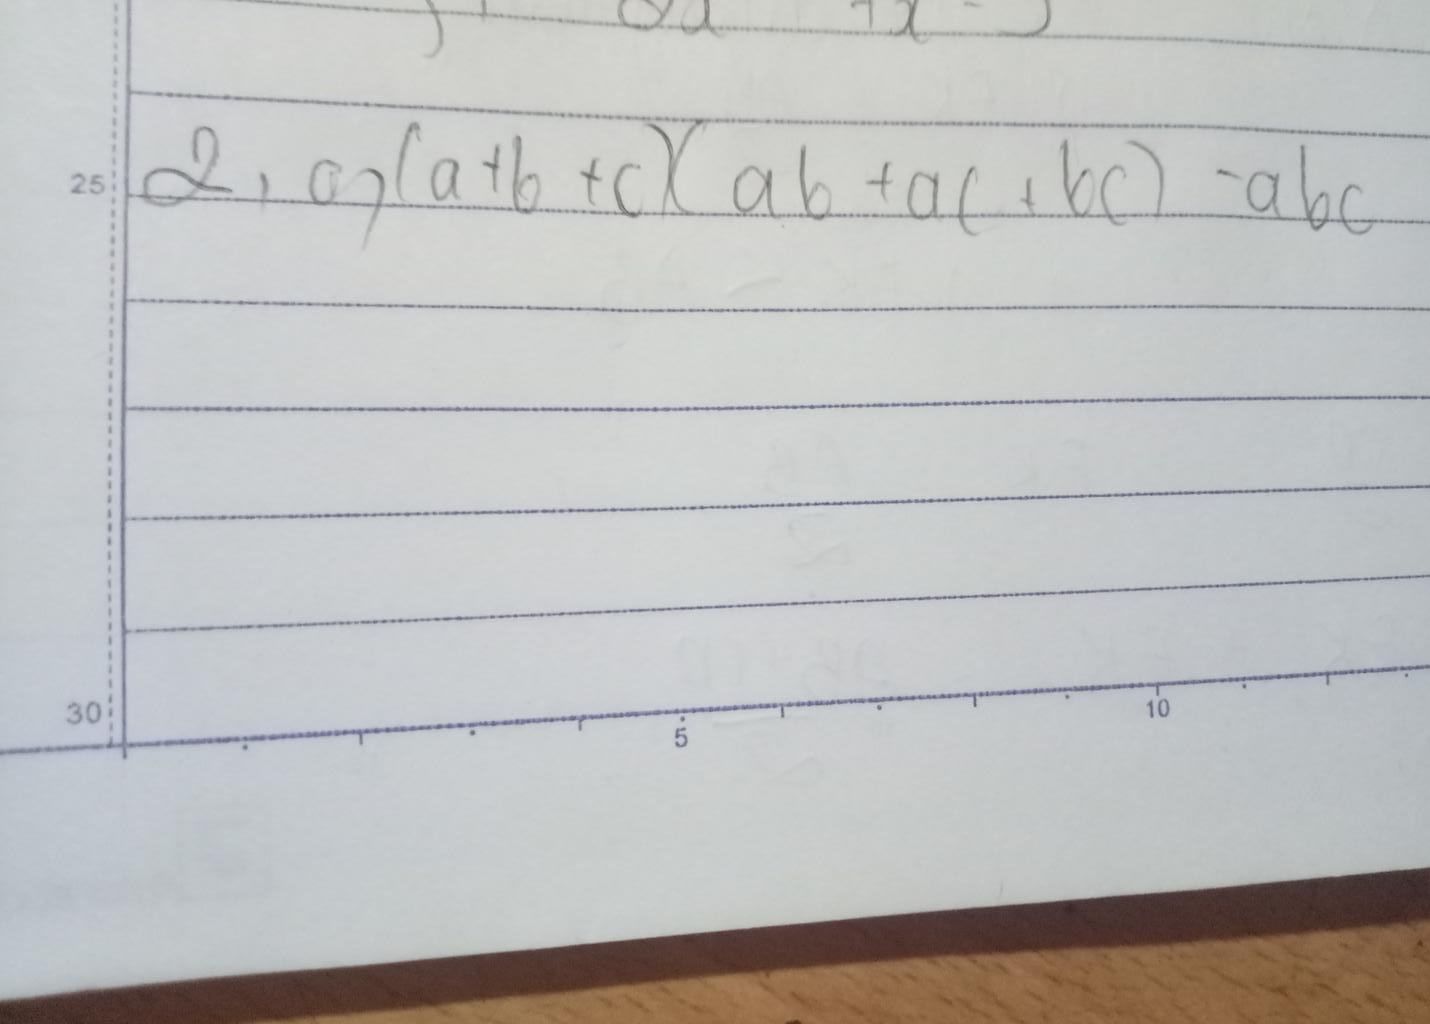 25 2, a, (a+b+c)(ab+ac+bc)-abc
5 10
30